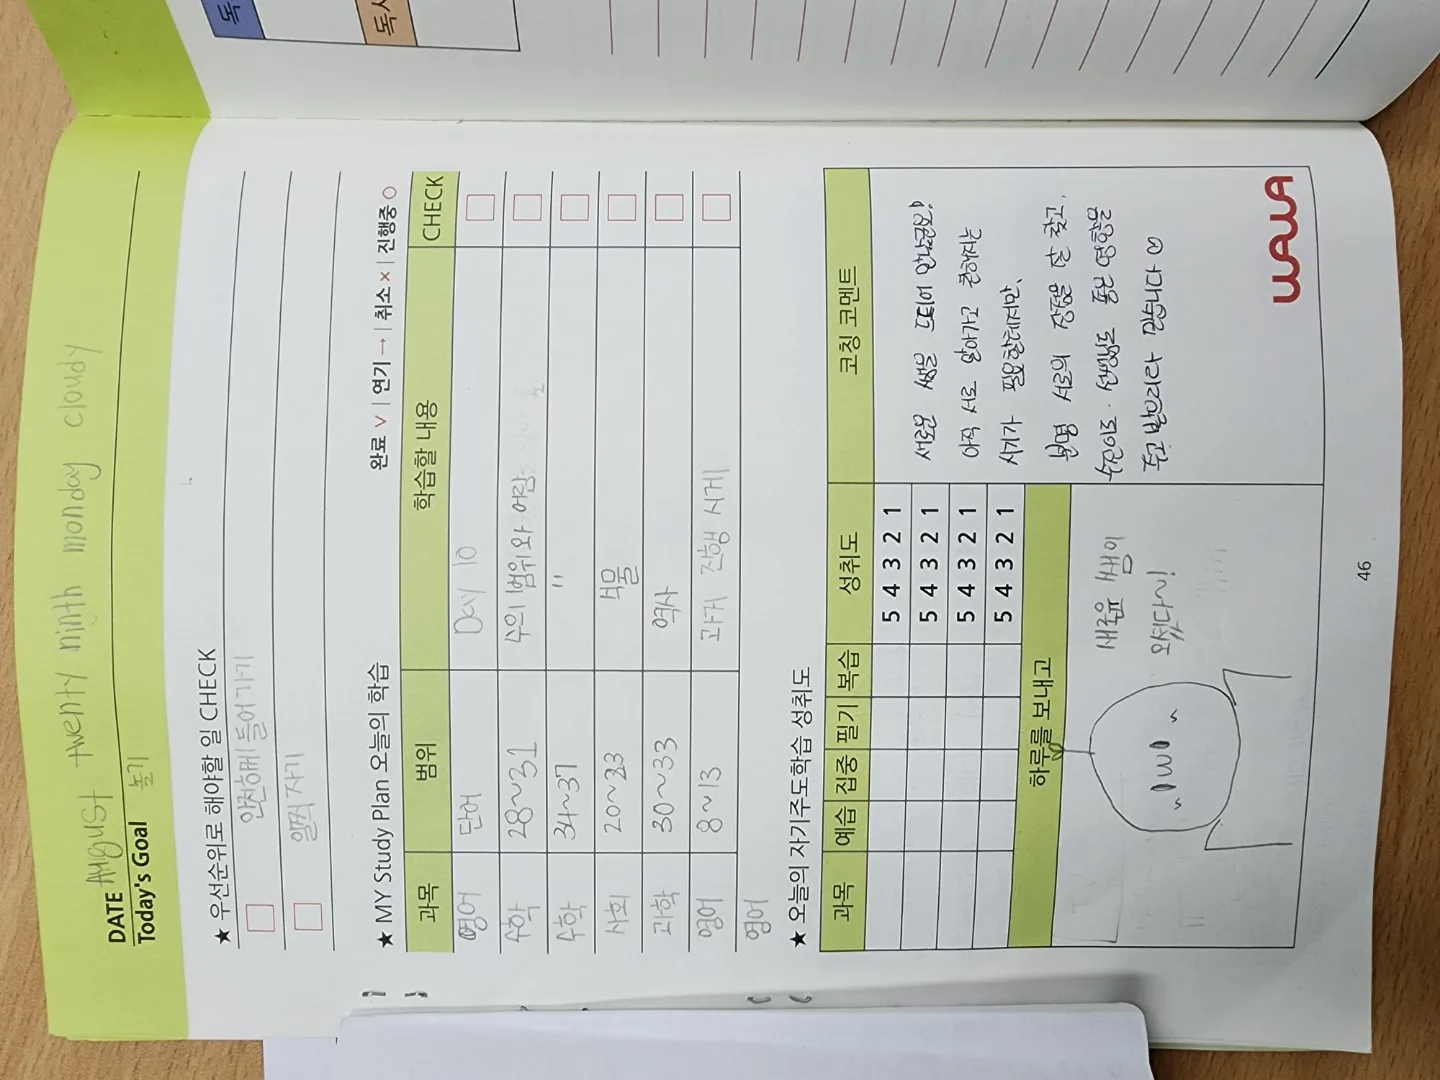 독
독서
DATE August twenty ninth monday cloudy
Today's Goal 놀기
★ 우선순위로 해야할 일 CHECK
안전하게 들어가기
일찍 자기
★ MY Study Plan 오늘의 학습
완료 ∨ | 연기 → | 취소 × | 진행중 ○
과목 범위 학습할 내용 CHECK
영어 단어 Day 10
수학 28~31 수의 범위와 어림
수학 34~37 "
사회 20~23
과학 30~33 역사
영어 8~13 과거 진행 시제
영어
★ 오늘의 자기주도학습 성취도
과목 예습 집중 필기 복습 성취도 코칭 코멘트
5 4 3 2 1
5 4 3 2 1
5 4 3 2 1
5 4 3 2 1
하루를 보내고
새로운 쌤이
오셨다~!
새로운 쌤을 드디어 만났군요!
아직 서로 알아가고 친해지는
시기가 필요할테지만,
분명 서로의 장점을 잘 찾고,
수진이도 선생님도 좋은 영향을
주고 받으리라 믿습니다
WAWA
46